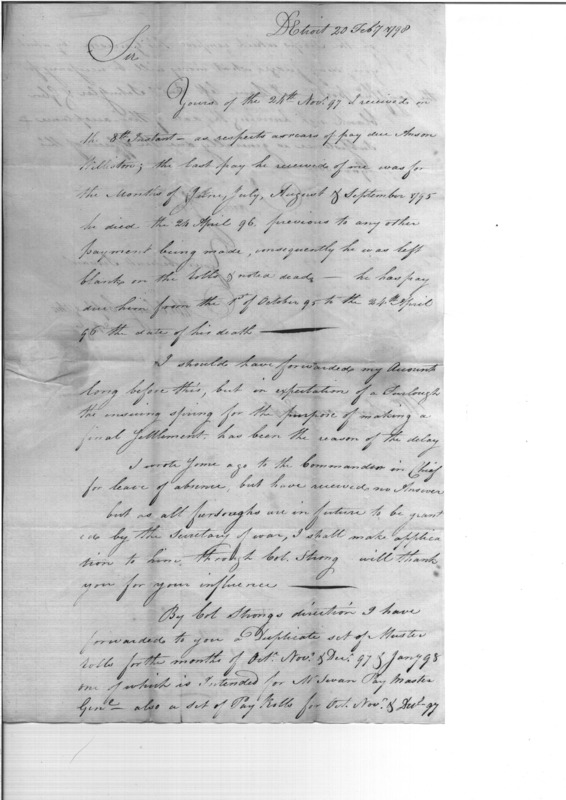 Detroit 20 Feby 1798
Sir
Yours of the 24th Novr 97 I received on
the 8th Instant - as respects arrears of pay due Anson
Williston; the last pay he received of me was for
the Months of June, July, August & September 1795
he died the 24 April 96, previous to any other
payment being made, consequently he was left
blank on the Rolls & noted dead, — he has pay
due him from the 1st of October 95 to the 24th April
96 the date of his death —
I should have forwarded my Account
long before this, but in expectation of a Furlough
the insuing spring for the purpose of making a
final Settlement, has been the reason of the delay
I wrote some ago to the Commander in Chief
for leave of absence, but have received no Answer
but as all furloughs are in future to be grant
ed by the Secretary of war, I shall make applica
tion to him, through Col. Strong will thank
you for your influence —
By Col Strongs direction I have
forwarded to you a Duplicate set of Muster
rolls for the months of Octr. Novr. & Decr. 97 & Jany 98
one of which is Intended for Mr Swan Pay Master
Genl - also a set of Pay Rolls for Oct. Novr. & Decr. 97